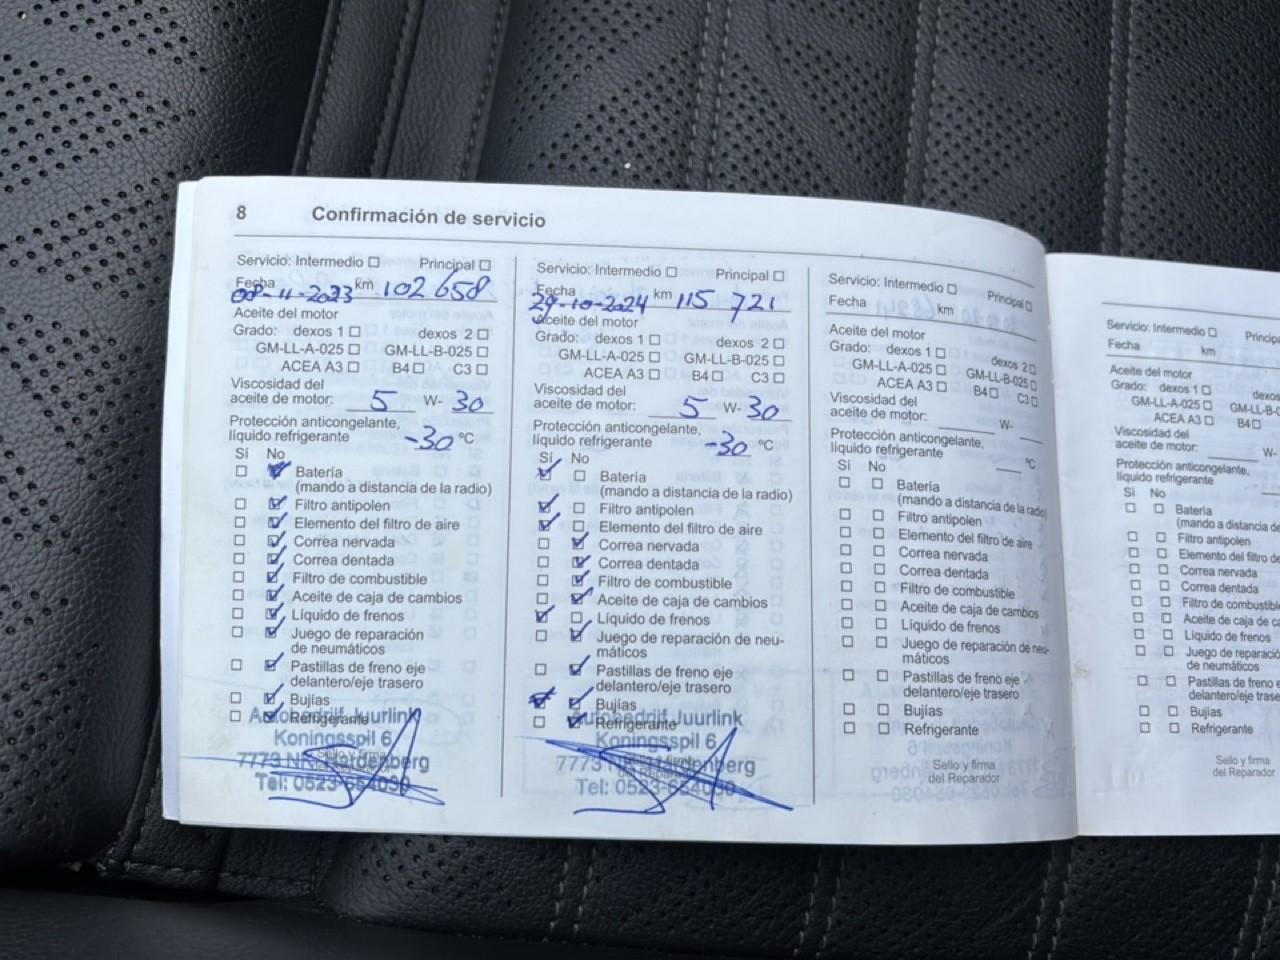 8 Confirmación de servicio
Servicio: Intermedio ☐ Principal ☐
Fecha 08-11-2023 km 102 658
Aceite del motor
Grado: dexos 1 ☐ dexos 2 ☐
GM-LL-A-025 ☐ GM-LL-B-025 ☐
ACEA A3 ☐ B4 ☐ C3 ☐
Viscosidad del
aceite de motor: 5 W- 30
Protección anticongelante,
líquido refrigerante -30 °C
Sí No
☐ ☑ Batería
(mando a distancia de la radio)
☐ ☑ Filtro antipolen
☐ ☑ Elemento del filtro de aire
☐ ☑ Correa nervada
☐ ☑ Correa dentada
☐ ☑ Filtro de combustible
☐ ☑ Aceite de caja de cambios
☐ ☑ Líquido de frenos
☐ ☑ Juego de reparación
de neumáticos
☐ ☑ Pastillas de freno eje
delantero/eje trasero
☐ ☑ Bujías
☐ ☑ Refrigerante
Autobedrijf Juurlink
Koningsspil 6
Sello y firma
7773 Hardenberg
Tel: 0523-654080
Servicio: Intermedio ☐ Principal ☐
Fecha 29-10-2024 km 115 721
Aceite del motor
Grado: dexos 1 ☐ dexos 2 ☐
GM-LL-A-025 ☐ GM-LL-B-025 ☐
ACEA A3 ☐ B4 ☐ C3 ☐
Viscosidad del
aceite de motor: 5 W- 30
Protección anticongelante,
líquido refrigerante -30 °C
Sí No
☑ ☐ Batería
(mando a distancia de la radio)
☑ ☐ Filtro antipolen
☑ ☐ Elemento del filtro de aire
☐ ☑ Correa nervada
☐ ☑ Correa dentada
☐ ☑ Filtro de combustible
☐ ☑ Aceite de caja de cambios
☑ ☐ Líquido de frenos
☐ ☑ Juego de reparación de neu-
máticos
☐ ☑ Pastillas de freno eje
delantero/eje trasero
☑ ☑ Bujías
☐ ☑ Refrigerante
Autobedrijf Juurlink
Koningsspil 6
Sello y firma
7773 Hardenberg
del Reparador
Tel: 0523-654080
Servicio: Intermedio ☐ Principal ☐
Fecha km
Aceite del motor
Grado: dexos 1 ☐ dexos 2 ☐
GM-LL-A-025 ☐ GM-LL-B-025 ☐
ACEA A3 ☐ B4 ☐ C3 ☐
Viscosidad del
aceite de motor: W-
Protección anticongelante,
líquido refrigerante °C
Sí No
☐ ☐ Batería
(mando a distancia de la radio)
☐ ☐ Filtro antipolen
☐ ☐ Elemento del filtro de aire
☐ ☐ Correa nervada
☐ ☐ Correa dentada
☐ ☐ Filtro de combustible
☐ ☐ Aceite de caja de cambios
☐ ☐ Líquido de frenos
☐ ☐ Juego de reparación de neu-
máticos
☐ ☐ Pastillas de freno eje
delantero/eje trasero
☐ ☐ Bujías
☐ ☐ Refrigerante
Sello y firma
del Reparador
Servicio: Intermedio ☐ Princip
Fecha km
Aceite del motor
Grado: dexos 1 ☐ dexos
GM-LL-A-025 ☐ GM-LL-B-
ACEA A3 ☐ B4 ☐
Viscosidad del
aceite de motor: W-
Protección anticongelante,
líquido refrigerante
Sí No
☐ ☐ Batería
(mando a distancia d
☐ ☐ Filtro antipolen
☐ ☐ Elemento del filtro d
☐ ☐ Correa nervada
☐ ☐ Correa dentada
☐ ☐ Filtro de combustibl
☐ ☐ Aceite de caja de ca
☐ ☐ Líquido de frenos
☐ ☐ Juego de reparació
de neumáticos
☐ ☐ Pastillas de freno e
delantero/eje traser
☐ ☐ Bujías
☐ ☐ Refrigerante
Sello y firma
del Reparador